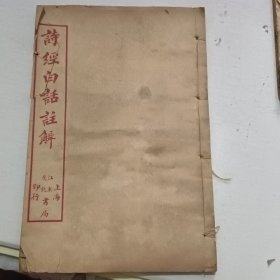 詩經白話註解
上海
江東
書局
印行